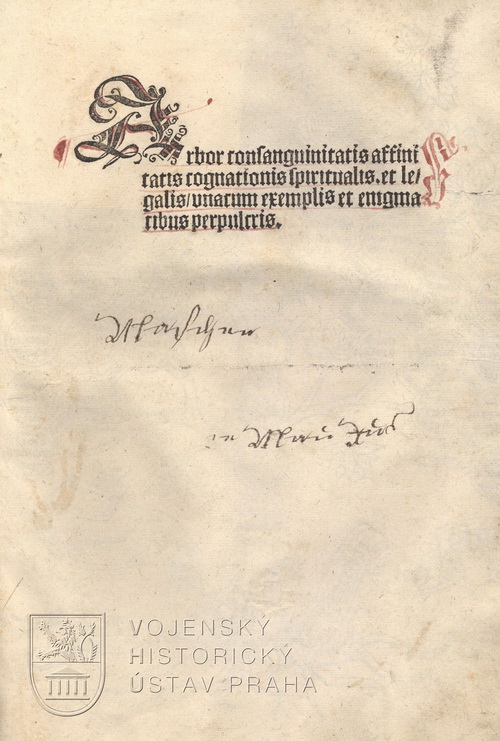 Arbor consanguinitatis affini
tatis cognationis spiritualis. et le/
galis/vnacum exemplis et enigma
tibus perpulcris.
VOJENSKÝ
HISTORICKÝ
ÚSTAV PRAHA